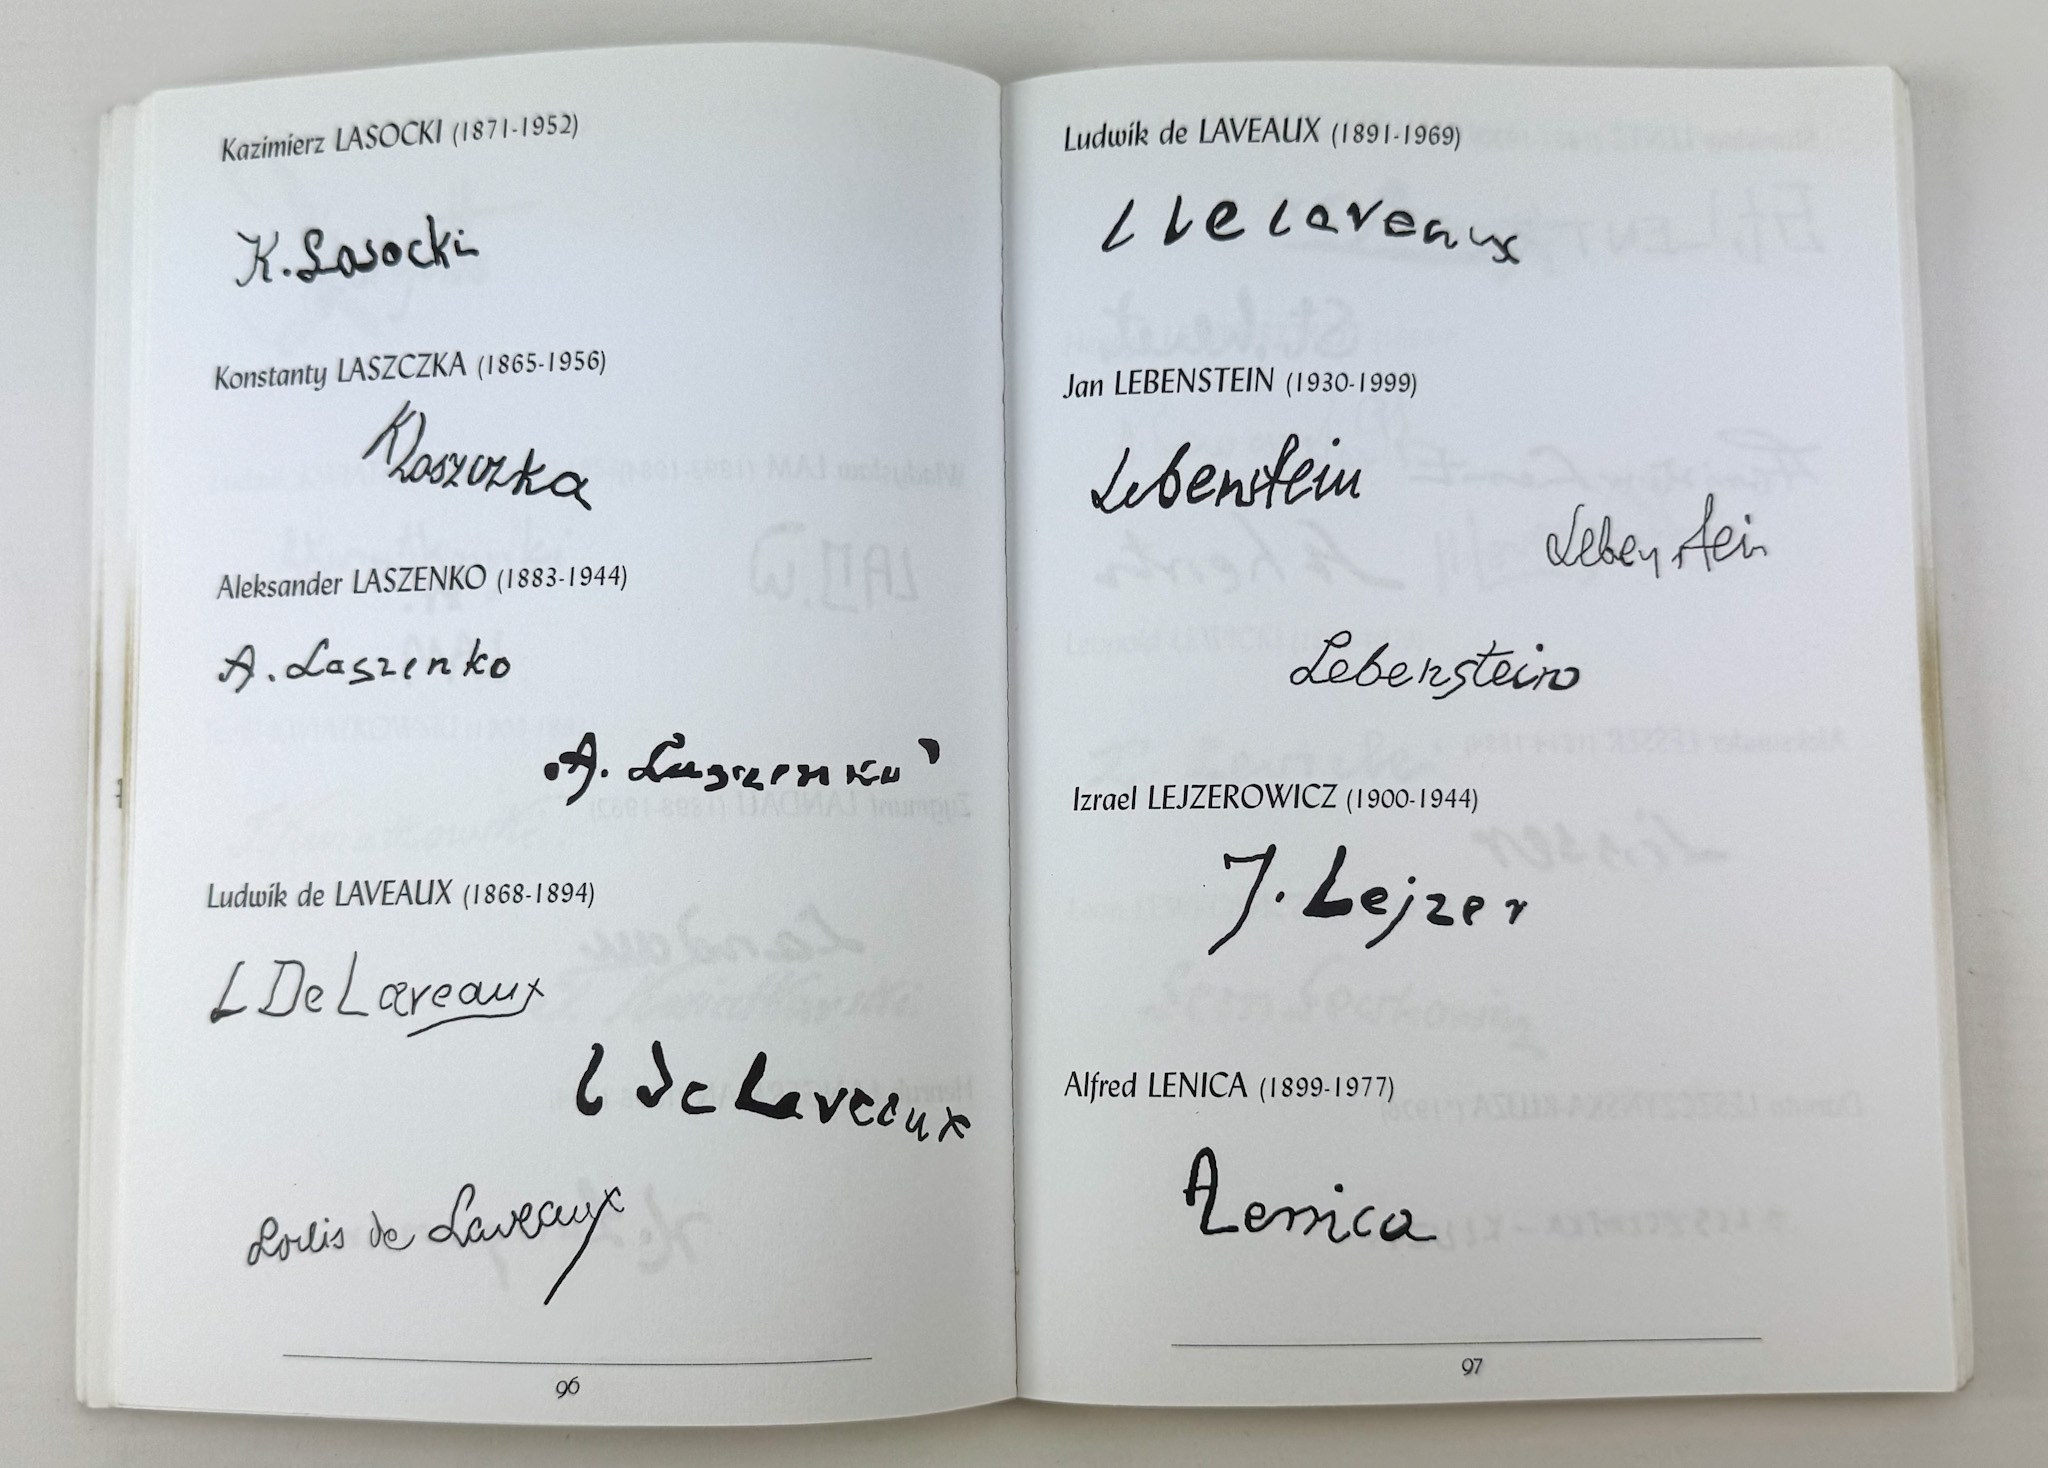 Kazimierz LASOCKI (1871-1952)
K. Lasocki
Konstanty LASZCZKA (1865-1956)
KLaszczka
Aleksander LASZENKO (1883-1944)
A. Laszenko
A. Laszenko
Ludwik de LAVEAUX (1868-1894)
L De Laveaux
L de Laveaux
Louis de Laveaux
96
Ludwik de LAVEAUX (1891-1969)
L De Laveaux
Jan LEBENSTEIN (1930-1999)
Lebenstein
Lebenstein
Lebenstein
Izrael LEJZEROWICZ (1900-1944)
J. Lejzer
Alfred LENICA (1899-1977)
ALenica
97